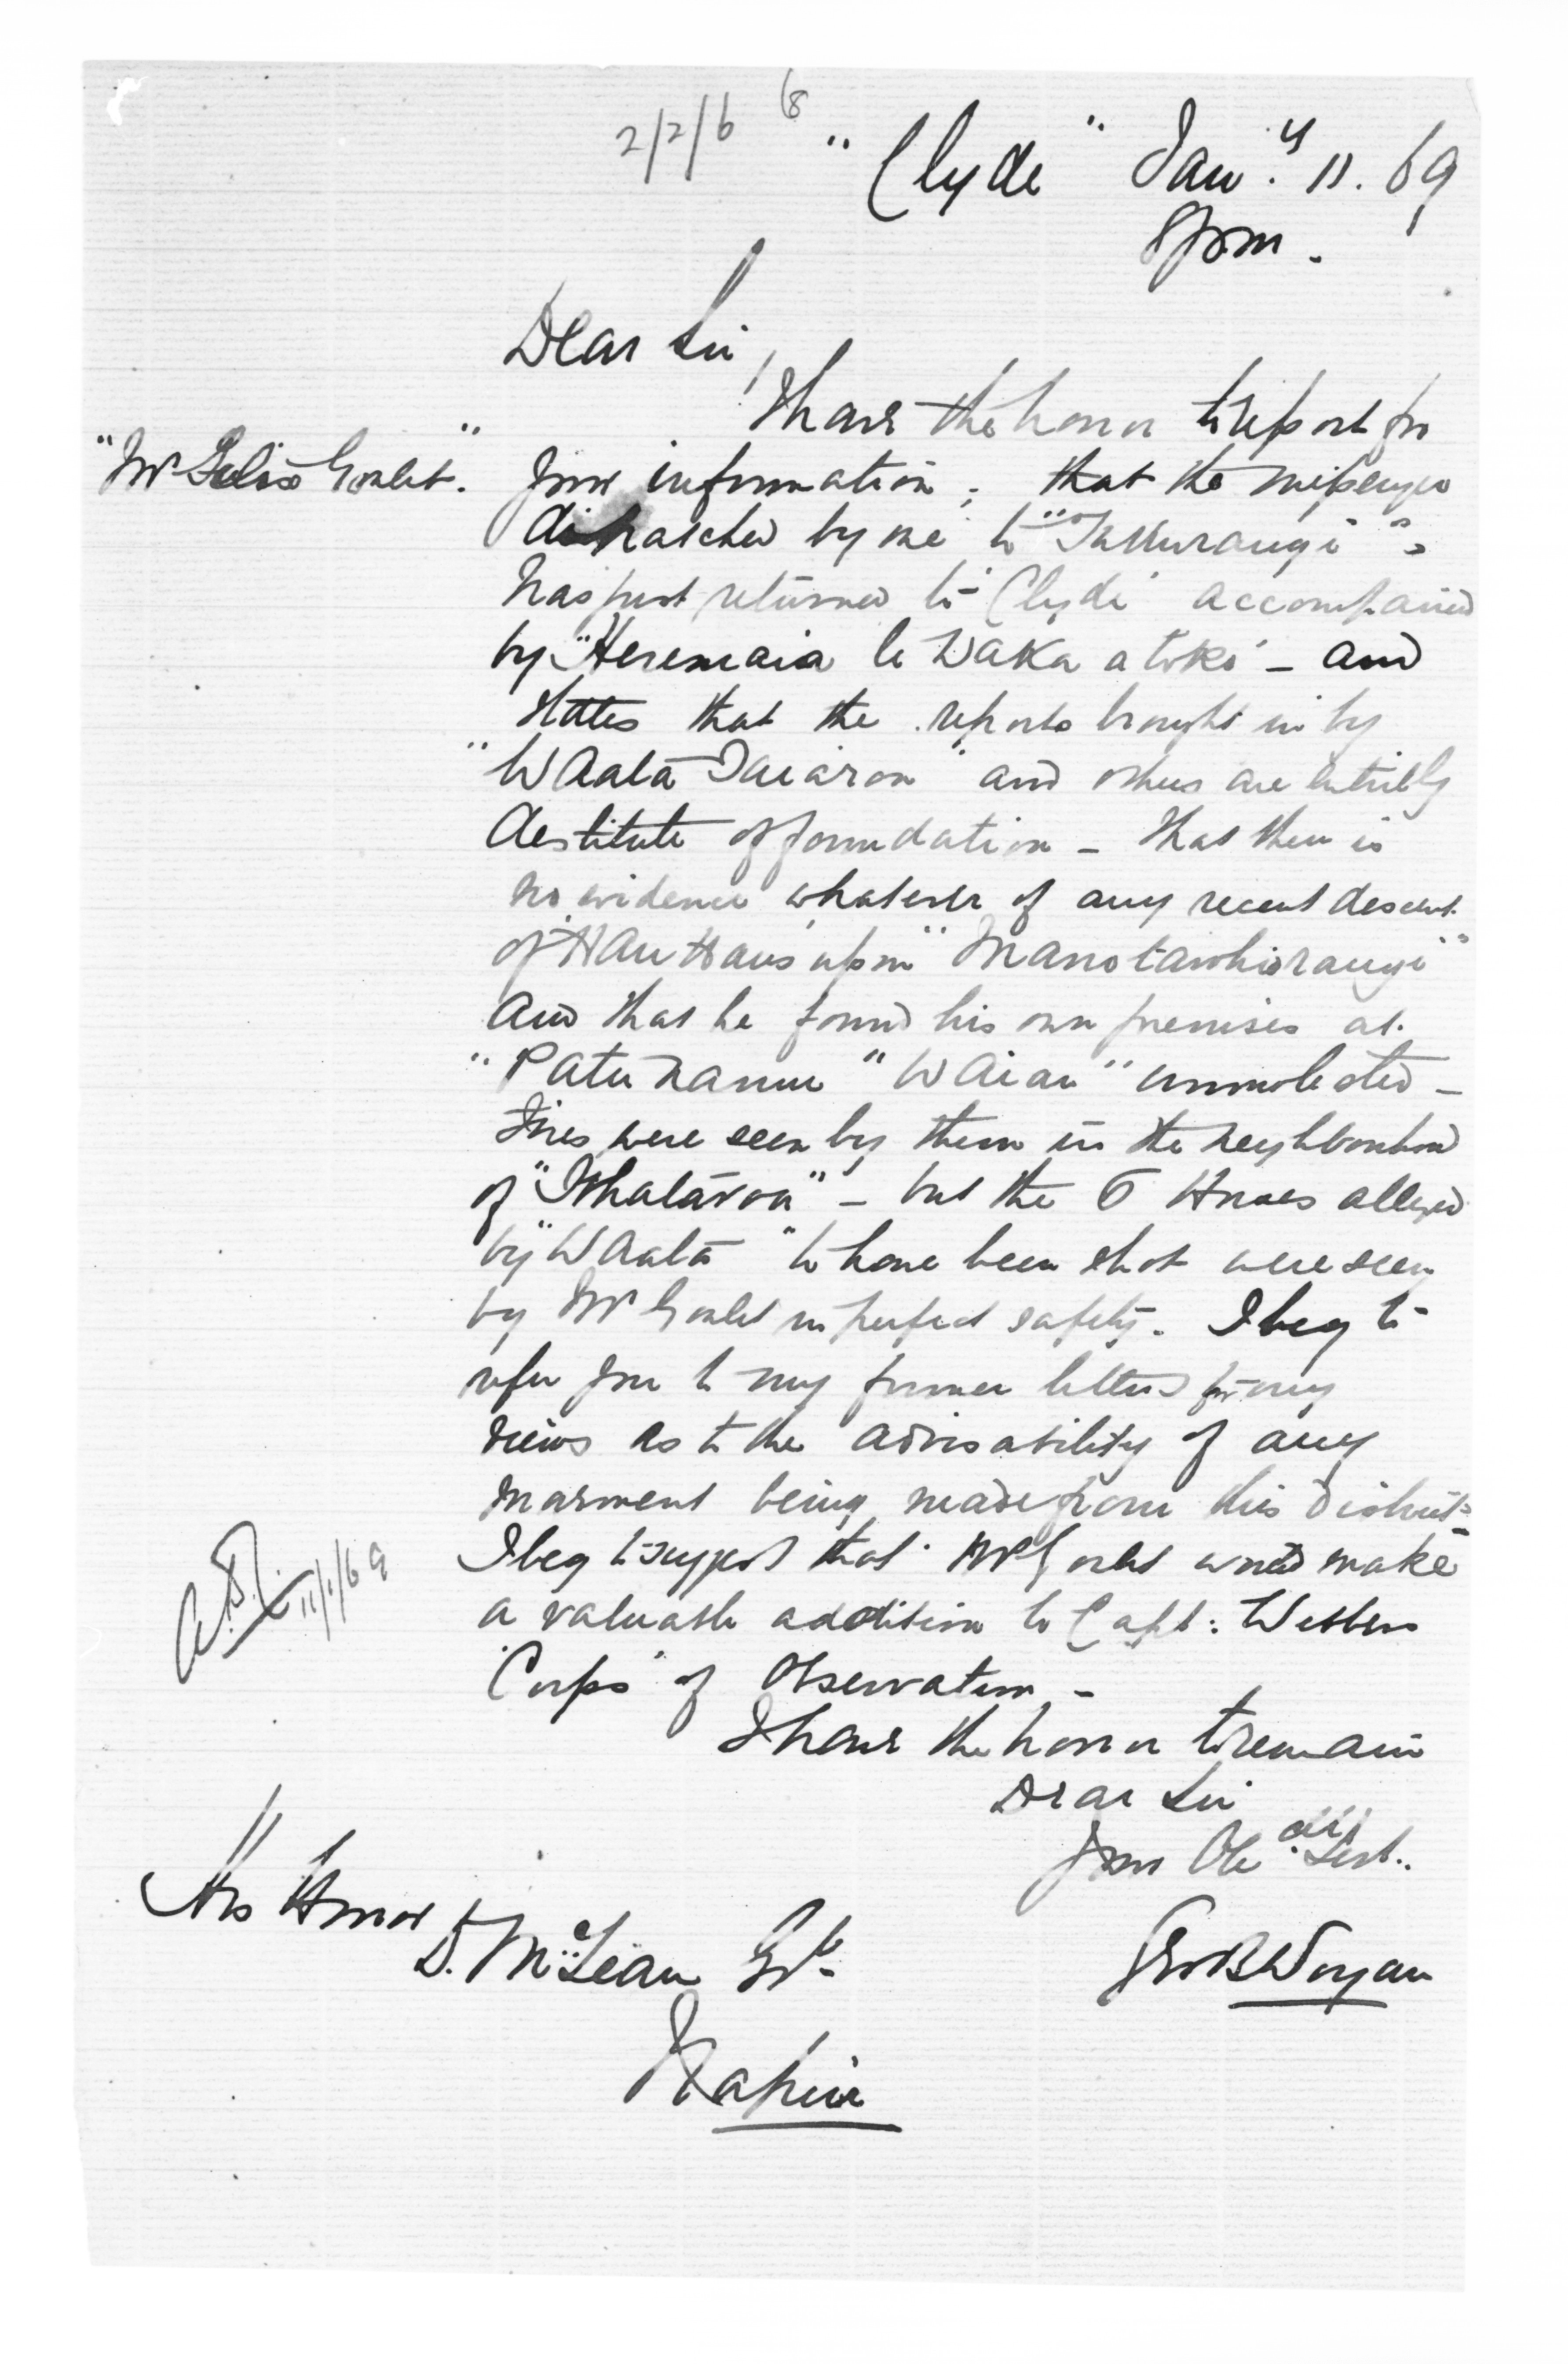 2/2/6 68
"Clyde" Jan.y 11. 69
8 pm.
Dear Sir,
I have the honor to report for
"Mr Felix Goulet". your information, that the messenger
dispatched by me to
has just returned to "Clyde" accompanied
by "Heremaia te Waka a toki" – and
states that the reports brought in by
"Waata Taiaroa" and others are entirely
destitute of foundation – that there is
no evidence whatever of any recent descent
of "Hau Haus" upon "Manotawhiorangi"
and that he found his own premises at
"Patunamu" "Waiau" unmolested –
Fires were seen by them in the neighbourhood
of "Whataroa" – but the 6 Horses alleged
by "Waata" to have been shot were seen
by Mr Goulet in perfect safety. I beg to
refer you to my former letters for my
views as to the advisability of any
movement being made from this District –
I beg to suggest that Mr Goulet would make
a valuable addition to Capt: Westrup's
"Corps" of Observation –
11/1/69
I have the honor to remain
Dear Sir
Your Obe.dt Servt.
His Honor
D. McLean Esqr
Napier